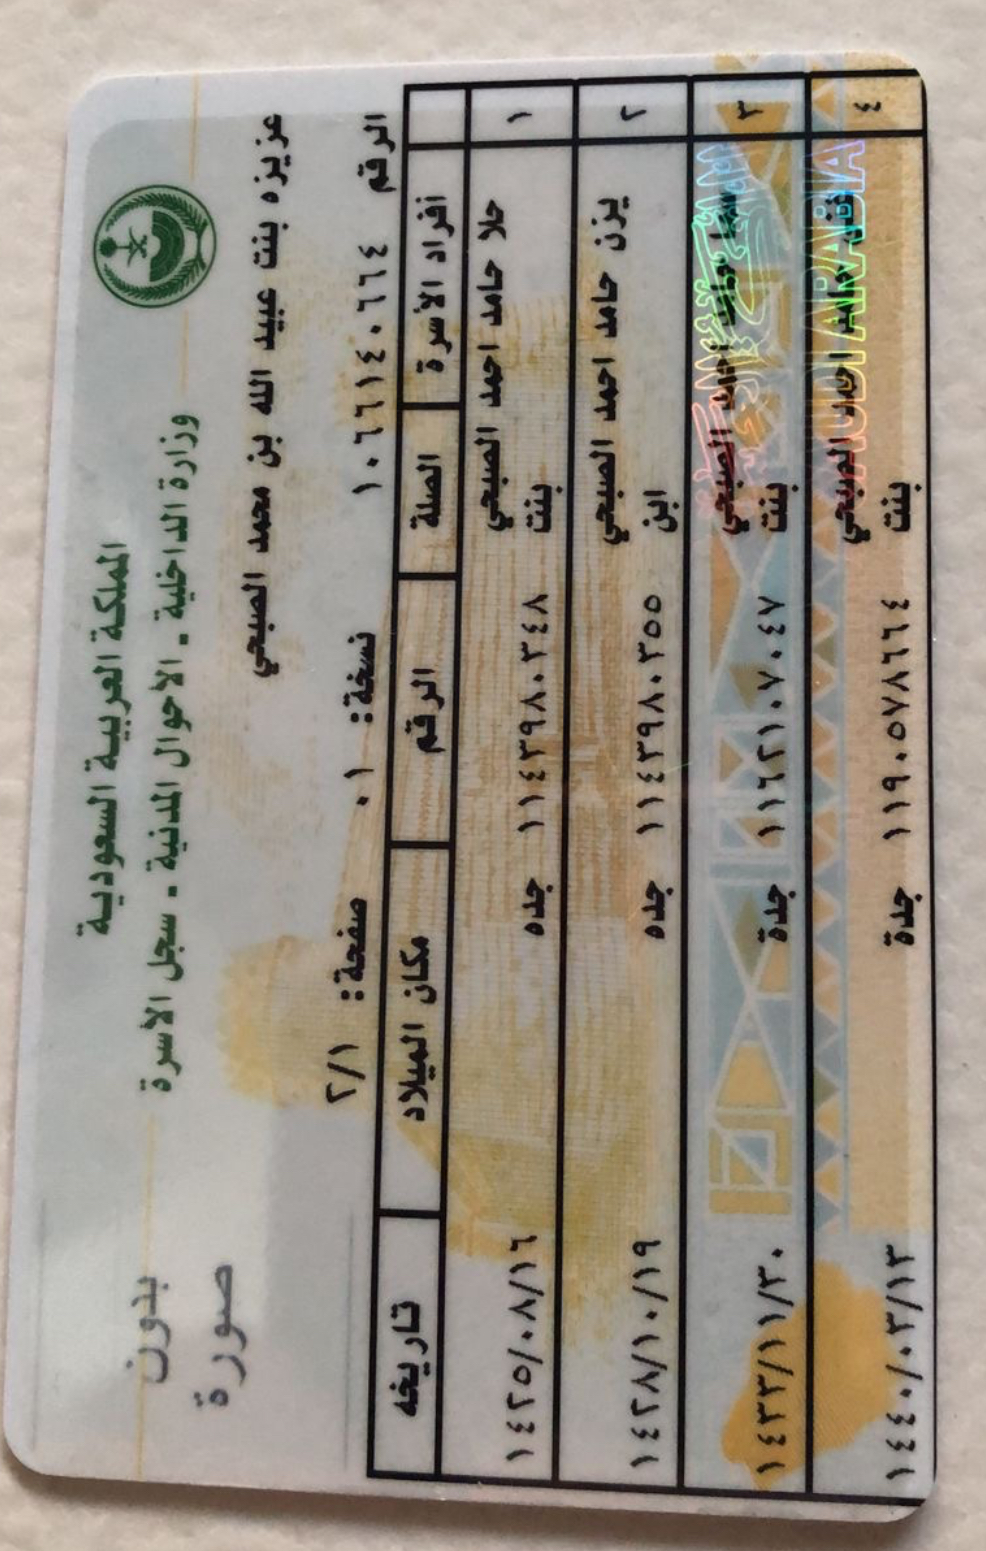 المملكة العربية السعودية
وزارة الداخلية - الأحوال المدنية - سجل الأسرة
بدون
صورة
عزيزه بنت عبيد الله بن محمد الصبحي
الرقم ١٠٦٦١٤٠٦٦٤ نسخة: ٠١ صفحة: ٢/١
أفراد الأسرة الصلة الرقم مكان الميلاد تاريخه
١ حلا حامد احمد الصبحي
بنت ١١٤٣٩٨٠٣٤٨ جده ١٤٢٥/٠٨/١٦
٢ يزن حامد احمد الصبحي
ابن ١١٤٣٩٨٠٣٥٥ جده ١٤٢٨/١٠/١٩
٣ حامد احمد الصبحي
بنت ١١٦٢١٠٧٠٤٧ جدة ١٤٣٣/١١/٣٠
٤ حامد احمد الصبحي
بنت ١١٩٠٥٧٨٦٦٤ جدة ١٤٤٠/٠٣/١٣
SAUDI ARABIA